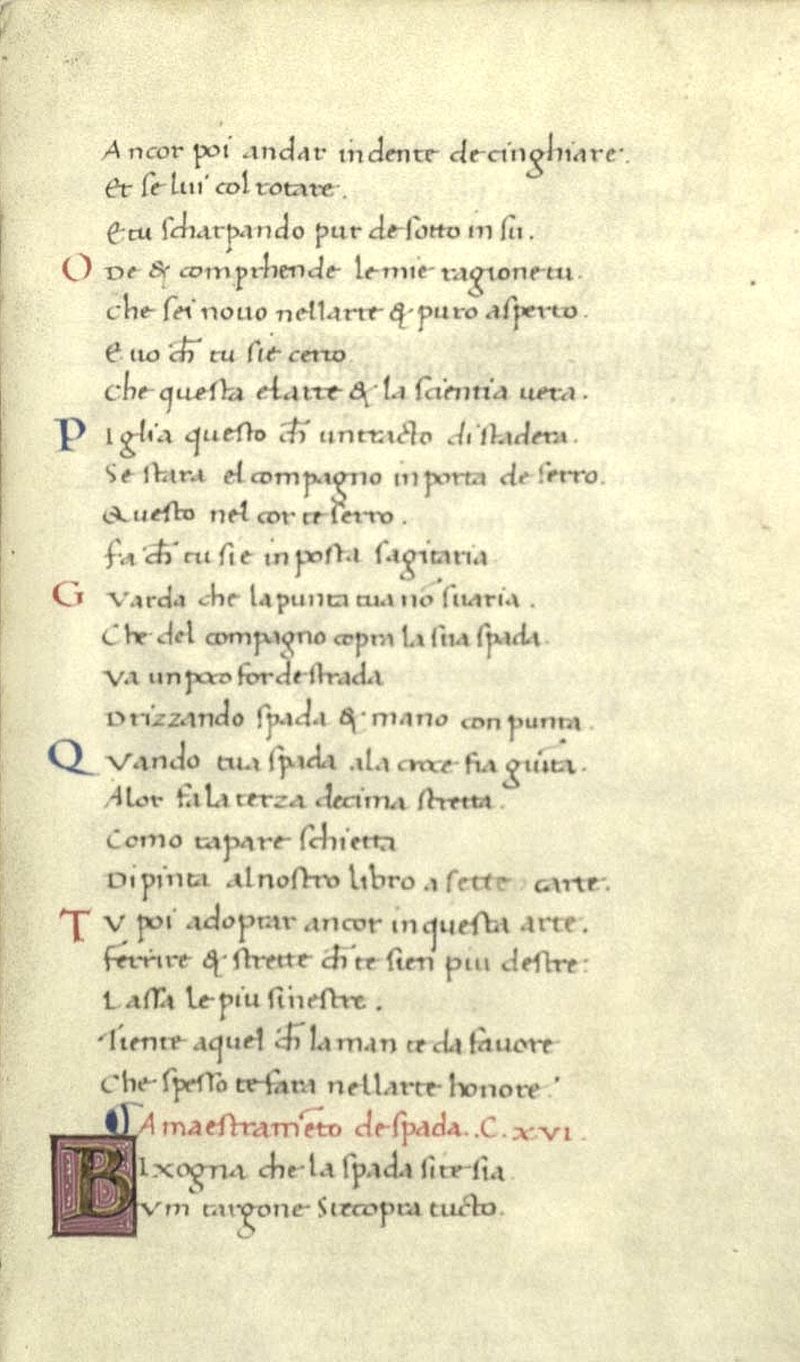 Ancor poi andar in dente de cinghiare.
et se lui col rotare.
E tu scharpando pur de sotto in su.
Ode & comprhende le mie ragione tu.
che sei nouo nellarte & puro asperto.
E uo ch̄ tu sie certo
che questa e larte & la scientia uera.
Piglia questo ch̄ un tracto di stadera.
Se stara el compagno in porta de ferro.
Questo nel cor te serro.
fa ch̄ tu sie in posta sagitaria
Guarda che la punta tua nō suaria.
Che del compagno copra la sua spada.
Va un poco for de strada
Drizzando spada & mano con punta.
Quando tua spada ala croce fia giūta.
Alor fa la terza decima stretta.
Como tapare schietta
Dipinta al nostro libro a sette carte.
Tu poi adoptar ancor in questa arte.
ferrire & strette ch̄ te sien piu destre:
Lassa le piu sinestre.
Tiente a quel ch̄ la man te da fauore
Che spesso te fara nellarte honore.
Amaestramēto de spada. C. xvi.
Bixogna che la spada si te sia
Vm targone si te copra tucto.